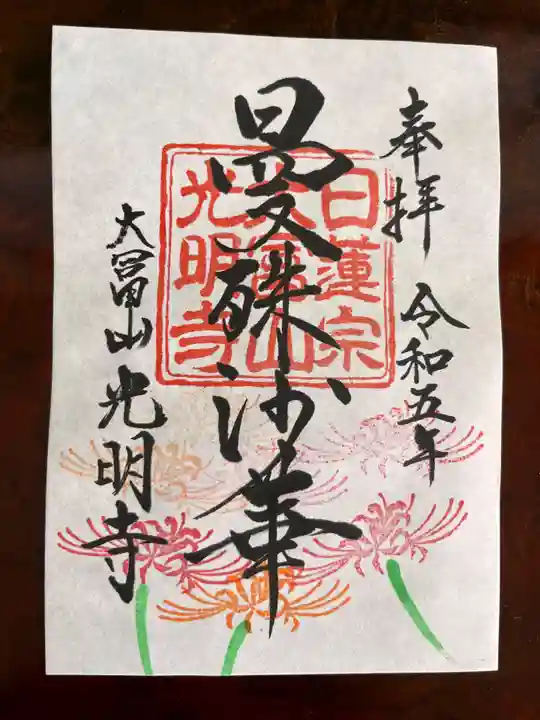 奉拝 令和五年
曼殊沙華
大冨山 光明寺
日蓮宗
光明寺